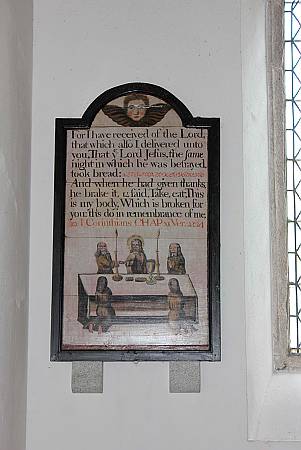 For I have received of the Lord,
that which also I delivered unto
you, That yͤ Lord Jesus, the same
night in which he was betrayed,
took bread:
And when he had given thanks,
he brake it, & said, Take, eat; This
is my body, Which is broken for
you: this do in remembrance of me.
I Corinthians CHAP xi Ver 23 24